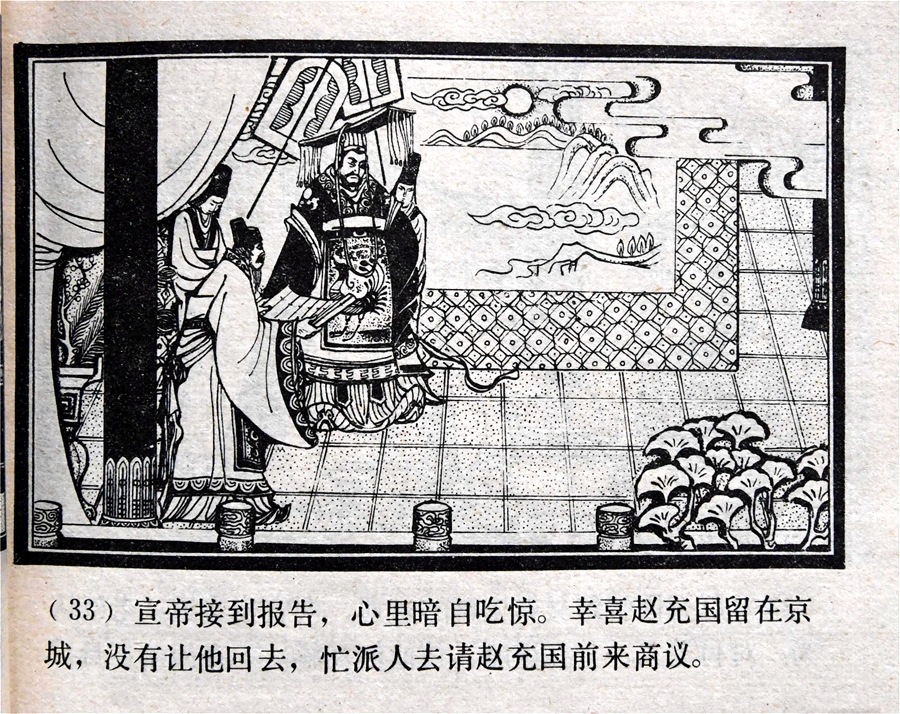 （33）宣帝接到报告，心里暗自吃惊。幸喜赵充国留在京
城，没有让他回去，忙派人去请赵充国前来商议。